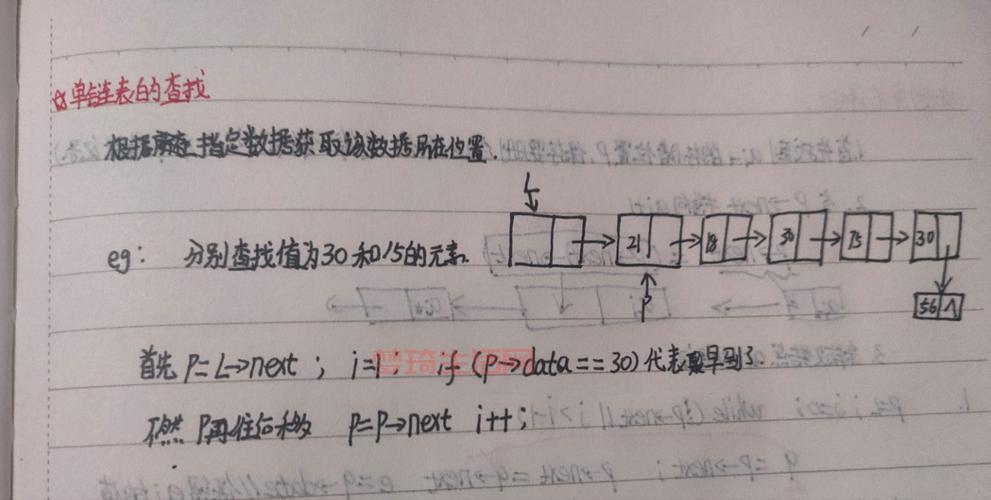 ☆单链表的查找
根据 指定数据获取该数据所在位置.
L
eg: 分别查找值为30和15的元素.
21 18 30 75 30
P
56 ∧
首先 P=L→next ; i=1; if (P→data==30) 代表 早到了.
不然 P再往后移 P=P→next i++;